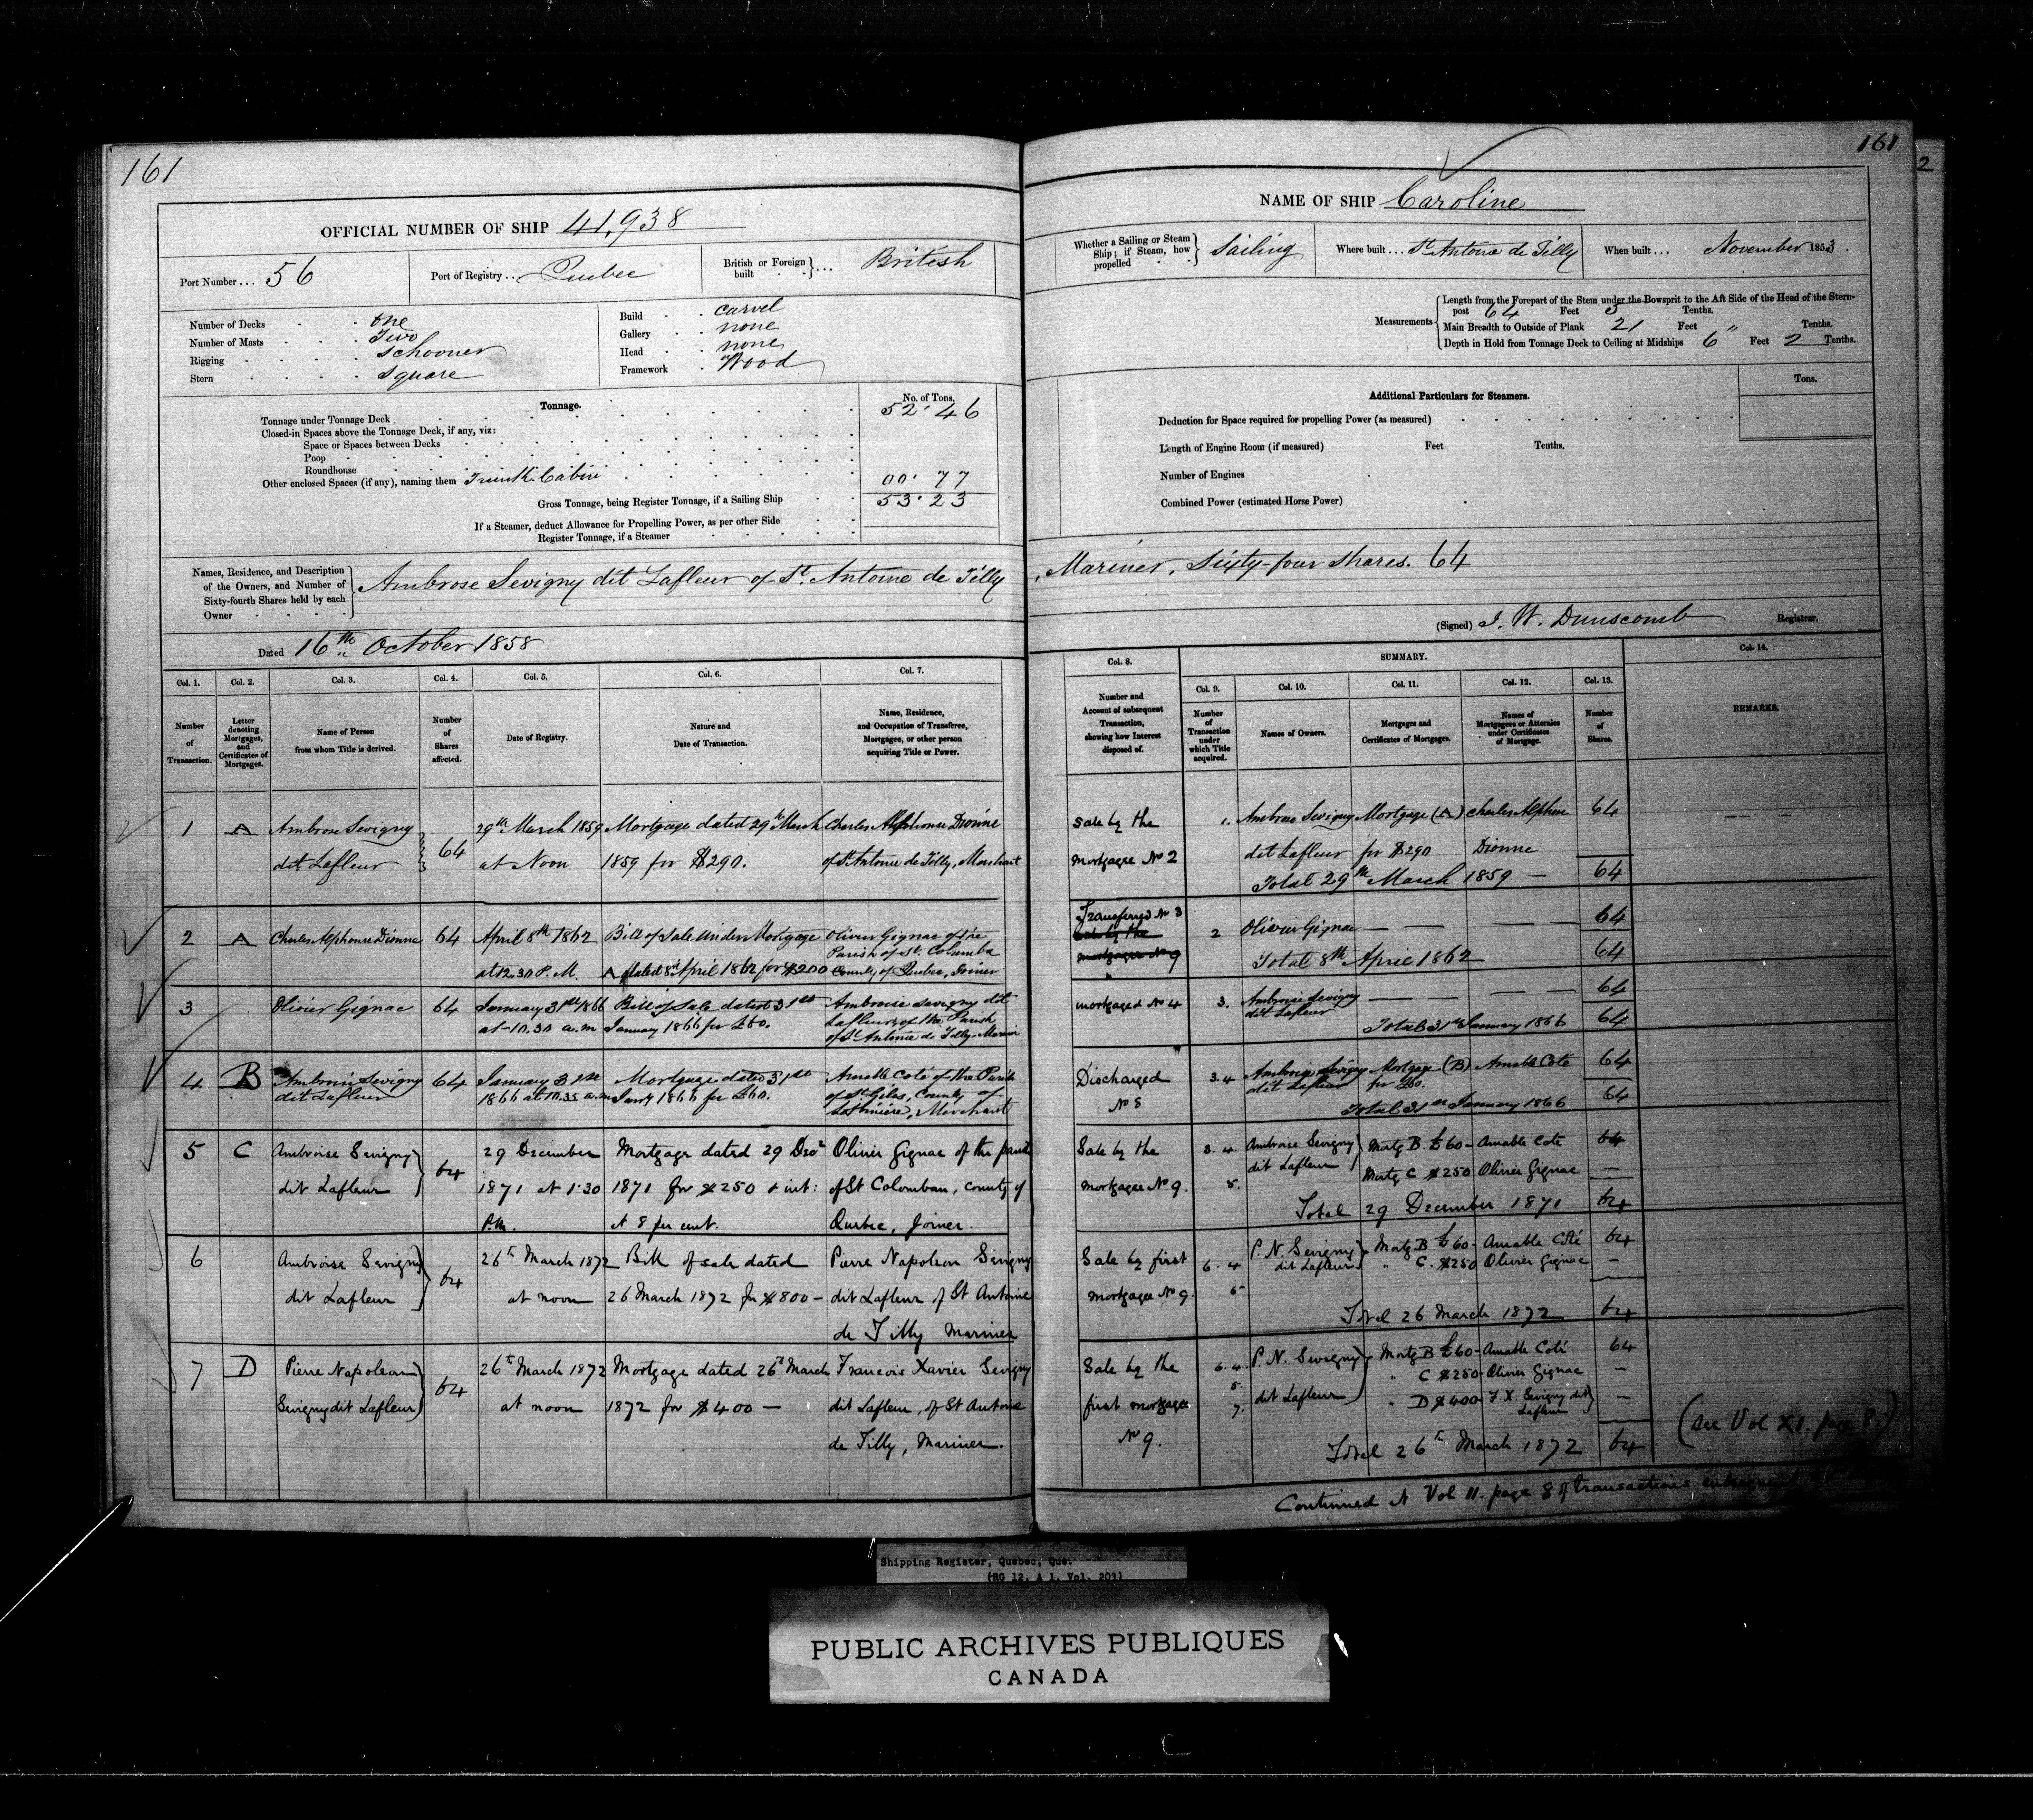 161
OFFICIAL NUMBER OF SHIP 41,938
Port Number ... 56
Port of Registry ... Quebec
British or Foreign built ... British
Number of Decks one
Number of Masts Two
Rigging Schooner
Stern square
Build carvel
Gallery none
Head none
Framework Wood
Tonnage.
No. of Tons.
Tonnage under Tonnage Deck 52.46
Closed-in Spaces above the Tonnage Deck, if any, viz:
Space or Spaces between Decks
Poop
Roundhouse
Other enclosed Spaces (if any), naming them Trunk Cabin 00.77
Gross Tonnage, being Register Tonnage, if a Sailing Ship 53.23
If a Steamer, deduct Allowance for Propelling Power, as per other Side
Register Tonnage, if a Steamer
Names, Residence, and Description of the Owners, and Number of Sixty-fourth Shares held by each Owner
Ambrose Sevigny dit Lafleur of St. Antoine de Tilly
Dated 16th October 1858
Col. 1. Col. 2. Col. 3. Col. 4. Col. 5. Col. 6. Col. 7.
Number of Transaction.
Letter denoting Mortgages, and Certificates of Mortgages.
Name of Person from whom Title is derived.
Number of Shares affected.
Date of Registry.
Nature and Date of Transaction.
Name, Residence, and Occupation of Transferee, Mortgagee, or other person acquiring Title or Power.
1 A Ambrose Sevigny 64 29th March 1859 Mortgage dated 29th March Charles Alphonse Dionne
dit Lafleur at Noon 1859 for $290. of St Antoine de Tilly, Merchant
2 A Charles Alphonse Dionne 64 April 8th 1862 Bill of Sale under Mortgage Olivier Gignac of the
Parish of St. Columba
at 12.30 P.M. A dated 8th April 1862 for $200 County of Quebec, Joiner
3 Olivier Gignac 64 January 31st 1866 Bill of Sale dated 31st Ambroise Sevigny dit
at 10.30 a.m January 1866 for £60. Lafleur of the Parish
of St Antoine de Tilly
4 B Ambroise Sevigny 64 January 31st Mortgage dated 31st Amable Coté of the Parish
dit Lafleur 1866 at 10.35 a.m Jany 1866 for £60. of St Giles, County of
Lotbinière, Merchant
5 C Ambroise Sevigny 64 29 December Mortgage dated 29 Decr Olivier Gignac of the parish
dit Lafleur 1871 at 1.30 1871 for $250 & int: of St Colomban, County of
P.M. at 8 per cent. Quebec, Joiner.
6 Ambroise Sevigny 64 26th March 1872 Bill of sale dated Pierre Napoleon Sevigny
dit Lafleur at noon 26 March 1872 for $800 - dit Lafleur of St Antoine
de Tilly Mariner
7 D Pierre Napoleon 64 26th March 1872 Mortgage dated 26th March Francois Xavier Sevigny
Sevigny dit Lafleur at noon 1872 for $400 - dit Lafleur, of St Antoine
de Tilly, Mariner.
161
2
NAME OF SHIP Caroline
Whether a Sailing or Steam Ship; if Steam, how propelled Sailing
Where built ... St Antoine de Tilly
When built ... November 1853.
Measurements
Length from the Forepart of the Stem under the Bowsprit to the Aft Side of the Head of the Stern-
post 64 Feet 5 Tenths.
Main Breadth to Outside of Plank 21 Feet " Tenths.
Depth in Hold from Tonnage Deck to Ceiling at Midships 6 Feet 2 Tenths.
Tons.
Additional Particulars for Steamers.
Deduction for Space required for propelling Power (as measured)
Length of Engine Room (if measured) Feet Tenths.
Number of Engines
Combined Power (estimated Horse Power)
, Mariner, Sixty-four shares. 64
(Signed) J. W. Dunscomb Registrar.
SUMMARY.
Col. 8. Col. 9. Col. 10. Col. 11. Col. 12. Col. 13. Col. 14.
Number and Account of subsequent Transaction, showing how Interest disposed of.
Number of Transaction under which Title acquired.
Names of Owners.
Mortgages and Certificates of Mortgages.
Names of Mortgagees or Attornies under Certificates of Mortgage.
Number of Shares.
REMARKS.
Sale by the 1. Ambrose Sevigny Mortgage (A) Charles Alphonse 64
mortgagee No 2 dit Lafleur for $290 Dionne
Total 29th March 1859 - 64
Transferred No 3
Sale by the 2 Olivier Gignac 64
mortgagee No 9 Total 8th April 1862 64
mortgaged No 4 3. Ambroise Sevigny 64
dit Lafleur
Total 31st January 1866 64
Discharged 3.4 Ambroise Sevigny Mortgage (B) Amable Coté 64
No 8 dit Lafleur for £60.
Total 31st January 1866 64
Sale by the 3.4. Ambroise Sevigny Mortg B. £60- Amable Cote 64
mortgagee No 9. 5. dit Lafleur Mortg C $250 Olivier Gignac -
Total 29 December 1871 64
Sale by first 6.4 P. N. Sevigny Mortg B £60- Amable Coté 64
mortgagee No 9. 5 dit Lafleur " C. $250 Olivier Gignac -
Total 26 March 1872 64
Sale by the 6.4. P. N. Sevigny Mortg B £60- Amable Coté 64
5. " C $250- Olivier Gignac -
first mortgagee 7. dit Lafleur " D $400- F. X. Sevigny dit Lafleur -
No 9. Total 26th March 1872 64
(See Vol XI. page 8.)
Continued at Vol 11. page 8 of transactions
Shipping Register, Quebec, Que.
(RG 12, A 1, Vol. 203)
PUBLIC ARCHIVES PUBLIQUES
CANADA